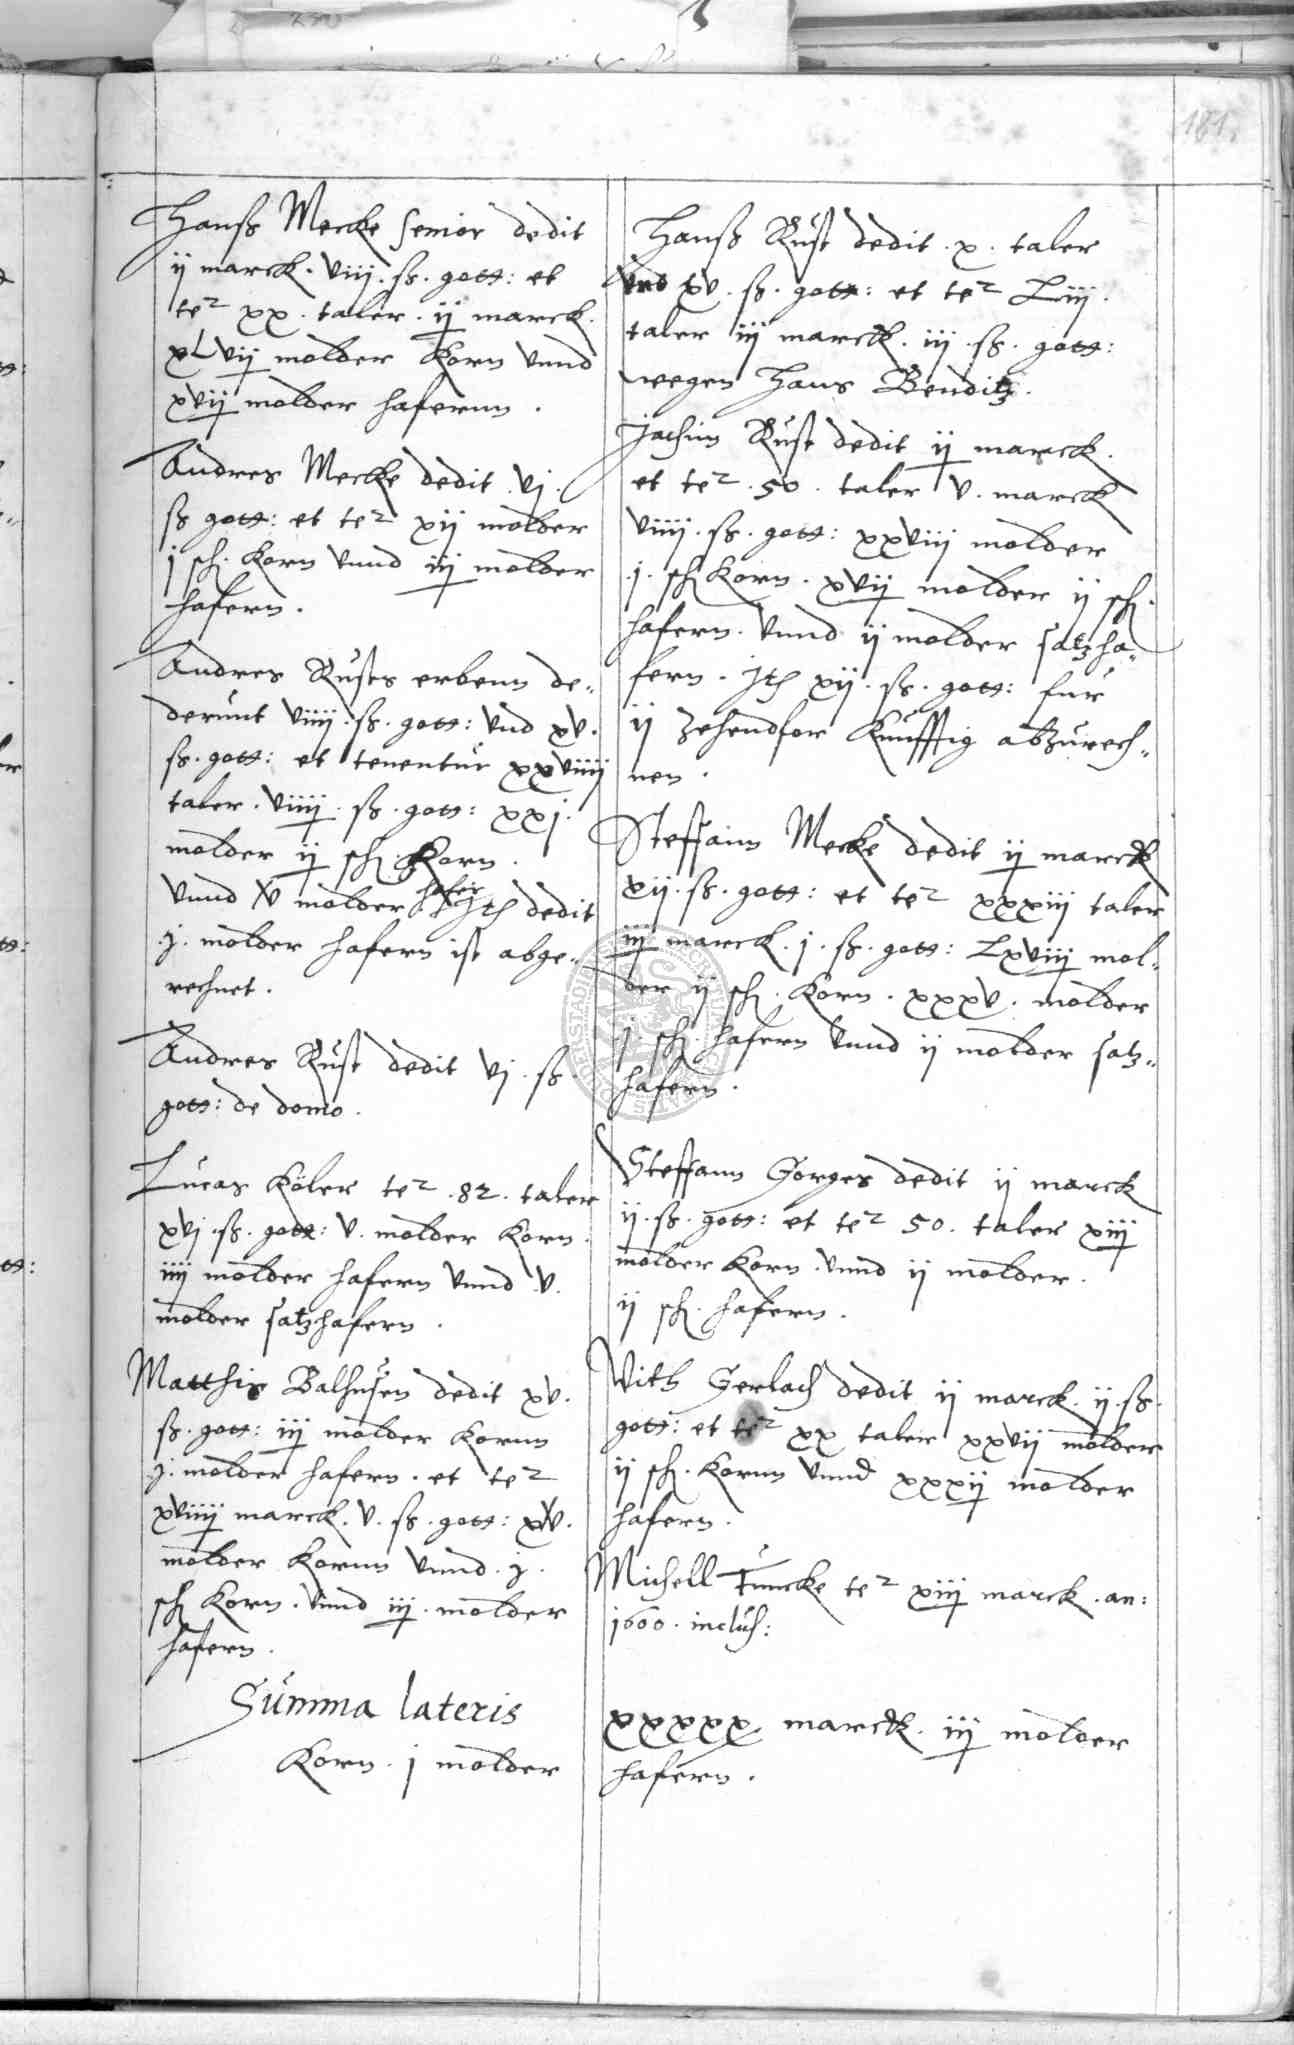 181.
Hanß Mecke Senior dedit
ij marck. viij. ß. gott: et
te2 xx. taler. ij marck.
xLvij molder Korn vnnd
xvij molder hafernn.
Andres Mecke dedit. vj.
ß gott: et te2 xij molder
j sch. Korn vnnd iij molder
hafern.
Andres Rusts erbenn de„
derunt viiij. ß. gott: vnd xv.
ß. gott: et tenentur xxviiij
taler. viiij. ß. gott: xxj.
molder ij sch. Korn.
vnnd V molder hafer Ith dedit
.j. molder hafern ist abge„
rechnet.
Andres Rust dedit vj. ß.
gott: de domo.
Lucas Köler te2. 82. taler
xvj. ß. gott: v. molder Korn.
iiij molder hafern vnnd .v.
molder satzhafern.
Matthis Balhusen dedit xv.
ß. gott: iij molder Kornn
.j. molder hafern. et te2
xviiij marck. v. ß. gott: xv.
molder Kornn vnnd .j.
sch Korn. vnnd iij. molder
hafern.
Summa lateris
Korn. j molder
Hanß Rust dedit. x. taler
vnd xv. ß. gott: et te2 Liij.
taler iij marck. iij. ß. gott:
wegen Hans Benditz.
Jachim Rust dedit ij marck.
et te2. 50. taler v. marck
viiij. ß. gott: xxviij molder
.j. sch Korn. xvij molder ij sch.
hafern. vnnd ij molder satzha„
fern. Ith xij. ß. gott: fur
ij zehendfor Kunfftig abzurech„
nen.
Steffann Mecke dedit ij marck
xij. ß. gott: et te2 xxxiij taler
iij marck. j. ß. gott: Lxviij mol„
der ij sch. Korn. xxxv. molder
j sch. hafern vnnd ij molder satz„
hafern.
Steffann Gorges dedit ij marck
ij. ß. gott: et te2 50. taler xiij
molder Korn. vnnd ij molder.
ij sch. hafern.
Vith Gerlach dedit ij marck. ij. ß.
gott: et te2 xx taler xxvij molder
ij sch. Kornn vnnd xxxij molder
hafern.
Michell Funcke te2 xiij marck. an:
1600. inclus:
xxxxx marck. iij molder
hafern.